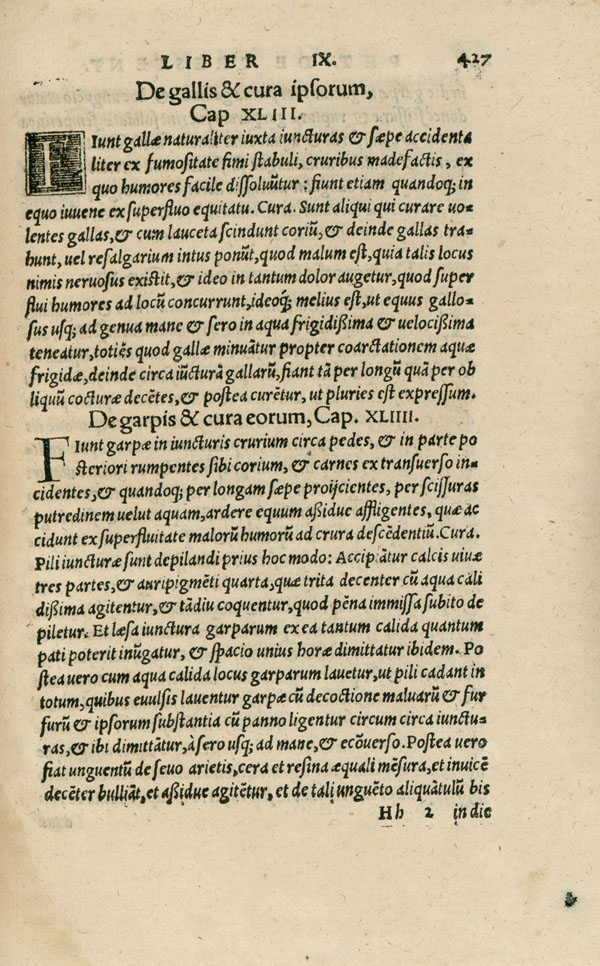 LIBER IX. 427
De gallis & cura ipsorum,
Cap XLIII.
FIunt gallæ naturaliter iuxta iuncturas & sæpe accidenta
liter ex fumositate fimi stabuli, cruribus madefactis, ex
quo humores facile dissoluũtur: fiunt etiam quandoq; in
equo iuuene ex superfluo equitatu. Cura. Sunt aliqui qui curare uo-
lentes gallas, & cum lauceta scindunt coriũ, & deinde gallas tra-
hunt, uel resalgarium intus ponũt, quod malum est, quia talis locus
nimis neruosus existit, & ideo in tantum dolor augetur, quod super
flui humores ad locũ concurrunt, ideoq́; melius est, ut equus gallo-
sus usq; ad genua mane & sero in aqua frigidißima & uelocißima
teneatur, totiẽs quod gallæ minuãtur propter coarctationem aquæ
frigidæ, deinde circa iũcturã gallarũ, fiant tã per longũ quã per ob
liquũ cocturæ decẽtes, & postea curẽtur, ut pluries est expressum.
De garpis & cura eorum, Cap. XLIIII.
FIunt garpæ in iuncturis crurium circa pedes, & in parte po
steriori rumpentes sibi corium, & carnes ex transuerso in-
cidentes, & quandoq; per longam sæpe proijcientes, per scissuras
putredinem uelut aquam, ardere equum aßidue affligentes, quæ ac
cidunt ex superfluitate malorũ humorũ ad crura descẽdentiũ. Cura.
Pili iuncturæ sunt depilandi prius hoc modo: Accipiãtur calcis uiuæ
tres partes, & auripigmẽti quarta, quæ trita decenter cũ aqua cali
dißima agitentur, & tãdiu coquentur, quod pẽna immissa subito de
piletur. Et læsa iunctura garparum ex ea tantum calida quantum
pati poterit inũgatur, & spacio unius horæ dimittatur ibidem. Po
stea uero cum aqua calida locus garparum lauetur, ut pili cadant in
totum, quibus euulsis lauentur garpæ cũ decoctione maluarũ & fur
furũ & ipsorum substantia cũ panno ligentur circum circa iunctu-
ras, & ibi dimittãtur, à sero usq; ad mane, & ecõuerso. Postea uero
fiat unguentũ de seuo arietis, cera et resina æquali mẽsura, et inuicẽ
decẽter bulliãt, et aßidue agitẽtur, et de tali unguẽto aliquãtulũ bis
Hh 2 in die